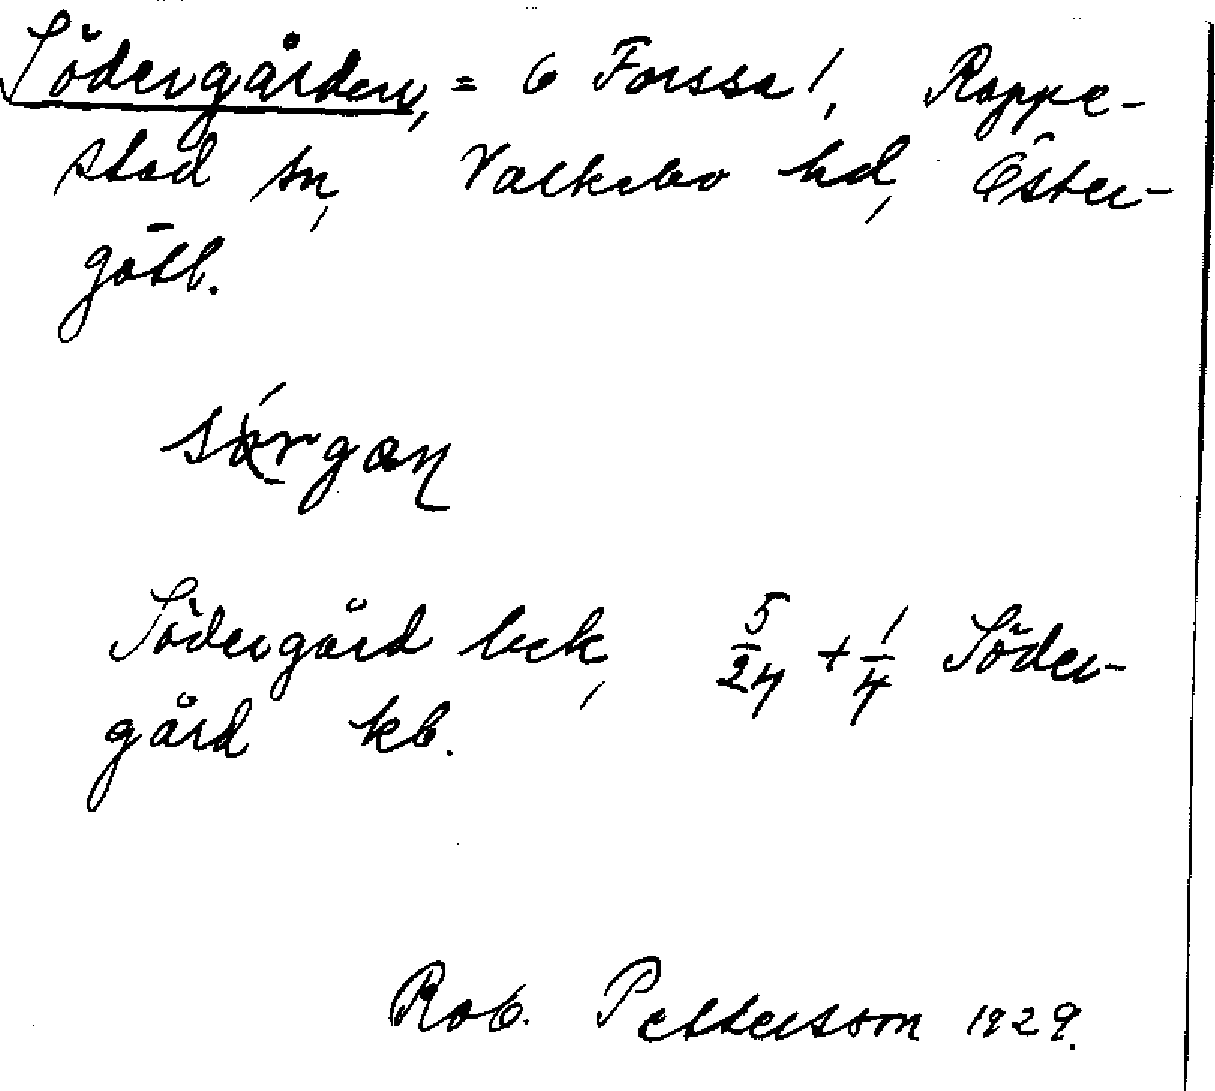 Södergården, = 6 Forssa!, Rappe-
stad sn, Valkebo hd, Öster-
götl.
sørgan
Södergård bek, 5/24 + 1/4 Söder-
gård kb.
Rob. Pettersson 1929.